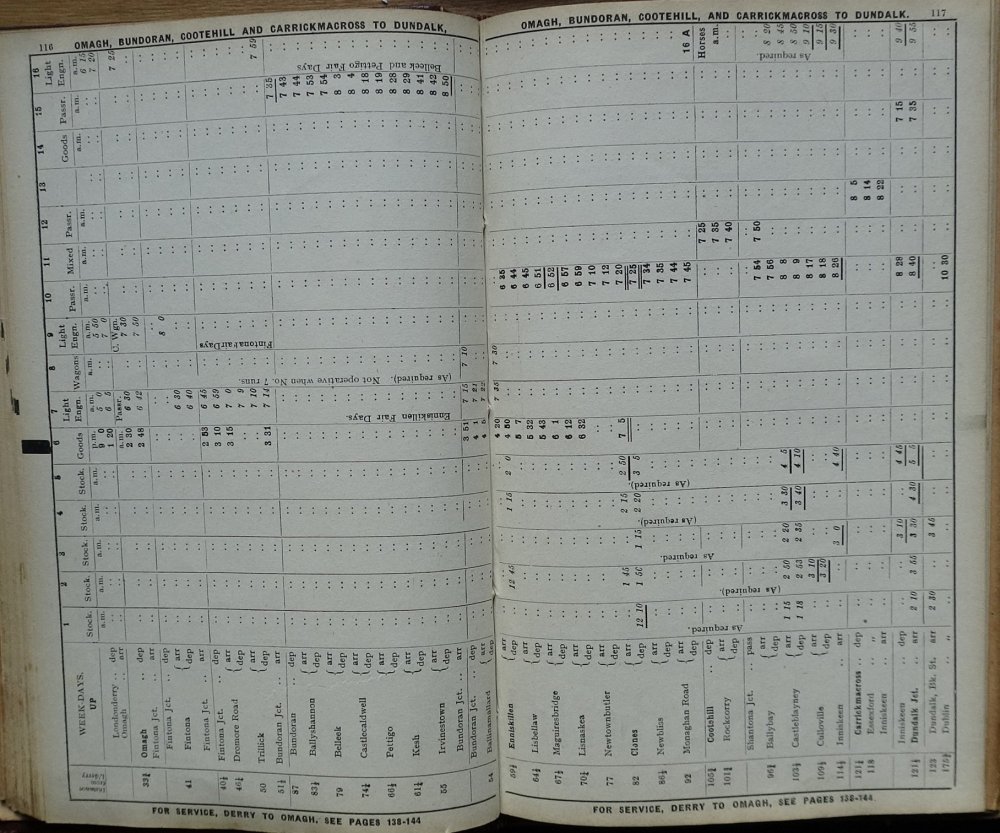 116 OMAGH, BUNDORAN, COOTEHILL AND CARRICKMACROSS TO DUNDALK,
WEEK-DAYS. UP 1 2 3 4 5 6 7 8 9 10 11 12 13 14 15 16
Stock. Stock. Stock. Stock. Stock. Goods Light Engn. Wagons Light Engn. Passr. Mixed Passr. Goods Passr. Light Engn.
a.m. a.m. a.m. a.m. p.m. a.m. a.m. a.m. a.m. a.m. a.m. a.m. a.m.
Londonderry .. dep 9 0 5 0 5 50 6 15
Omagh arr 1 20 6 5 7 0 7 20
a.m. Passr. C. Wgn.
33¼ Omagh .. dep 2 30 6 30 7 30 7 25
Fintona Jct. arr 2 48 6 42 7 50
Fintona Jct. .. dep 8 0
41 Fintona arr 6 30
dep 6 40
Fintona Jct. arr 2 53 6 45
40½ Fintona Jct. dep 3 10 6 59
46¼ Dromore Road arr 3 15 7 0
dep 7 9
50 Trillick arr 7 10
dep 3 31 7 14
51½ Bundoran Jct. .. arr 7 59
87 Bundoran .. dep 7 35
83½ Ballyshannon arr 7 43
dep 7 44
79 Belleek arr 7 53
dep 7 54
74½ Castlecaldwell arr 8 3
dep 8 4
66½ Pettigo arr 8 18
dep 8 19
61½ Kesh arr 8 28
dep 8 29
55 Irvinestown arr 8 41
dep 8 42
Bundoran Jct. .. arr 8 50
Bundoran Jct. .. dep 3 51 7 15 7 10
54 Ballinamallard arr 4 1 7 21
dep 4 5 7 22
Enniskillen Fair Days.
(As required). Not operative when No. 7 runs.
Fintona Fair Days
Belleek and Pettigo Fair Days
FOR SERVICE, DERRY TO OMAGH, SEE PAGES 138-144
OMAGH, BUNDORAN, COOTEHILL, AND CARRICKMACROSS TO DUNDALK. 117
16 A
Horses
a.m.
59½ Enniskillen arr 4 20 7 35 7 30
dep 12 45 1 15 2 0 4 50 6 35
64½ Lisbellaw arr 5 7 6 44
dep 5 32 6 45
67½ Maguiresbridge arr 5 43 6 51
dep 6 1 6 52
70½ Lisnaskea arr 6 12 6 57
dep 6 32 6 59
77 Newtownbutler arr 7 10
dep 7 12
82 Clones arr 1 45 2 15 2 50 7 5 7 20
dep 12 10 1 50 1 15 2 20 3 5 7 25
86½ Newbliss arr 7 34
dep 7 35
92 Monaghan Road arr 7 44
dep 7 45
105½ Cootehill .. dep 7 25
101½ Rockcorry arr 7 35
dep 7 40
Shantona Jct. .. pass 7 50
96½ Ballybay arr 7 54
dep 7 56 8 20
103½ Castleblayney arr 1 15 2 50 2 20 3 30 4 5 8 8 8 45
dep 1 18 2 53 2 35 3 40 4 10 8 9 8 50
109½ Culloville arr 3 10 8 17 9 10
dep 3 20 8 18 9 15
114½ Inniskeen .. arr 3 0 4 40 8 26 9 30
121½ Carrickmacross .. dep 8 5
118 Essexford " 8 14
Inniskeen arr 8 22
Inniskeen .. dep 3 10 4 45 8 28 7 15 9 40
121½ Dundalk Jct. .. arr 2 10 3 55 3 30 4 30 5 5 8 40 7 35 9 55
123 Dundalk, Bk. St. arr 2 30 3 45
175½ Dublin .. " 10 30
As required.
(As required).
As required.
(As required).
(As required).
As required.
FOR SERVICE, DERRY TO OMAGH, SEE PAGES 138-144